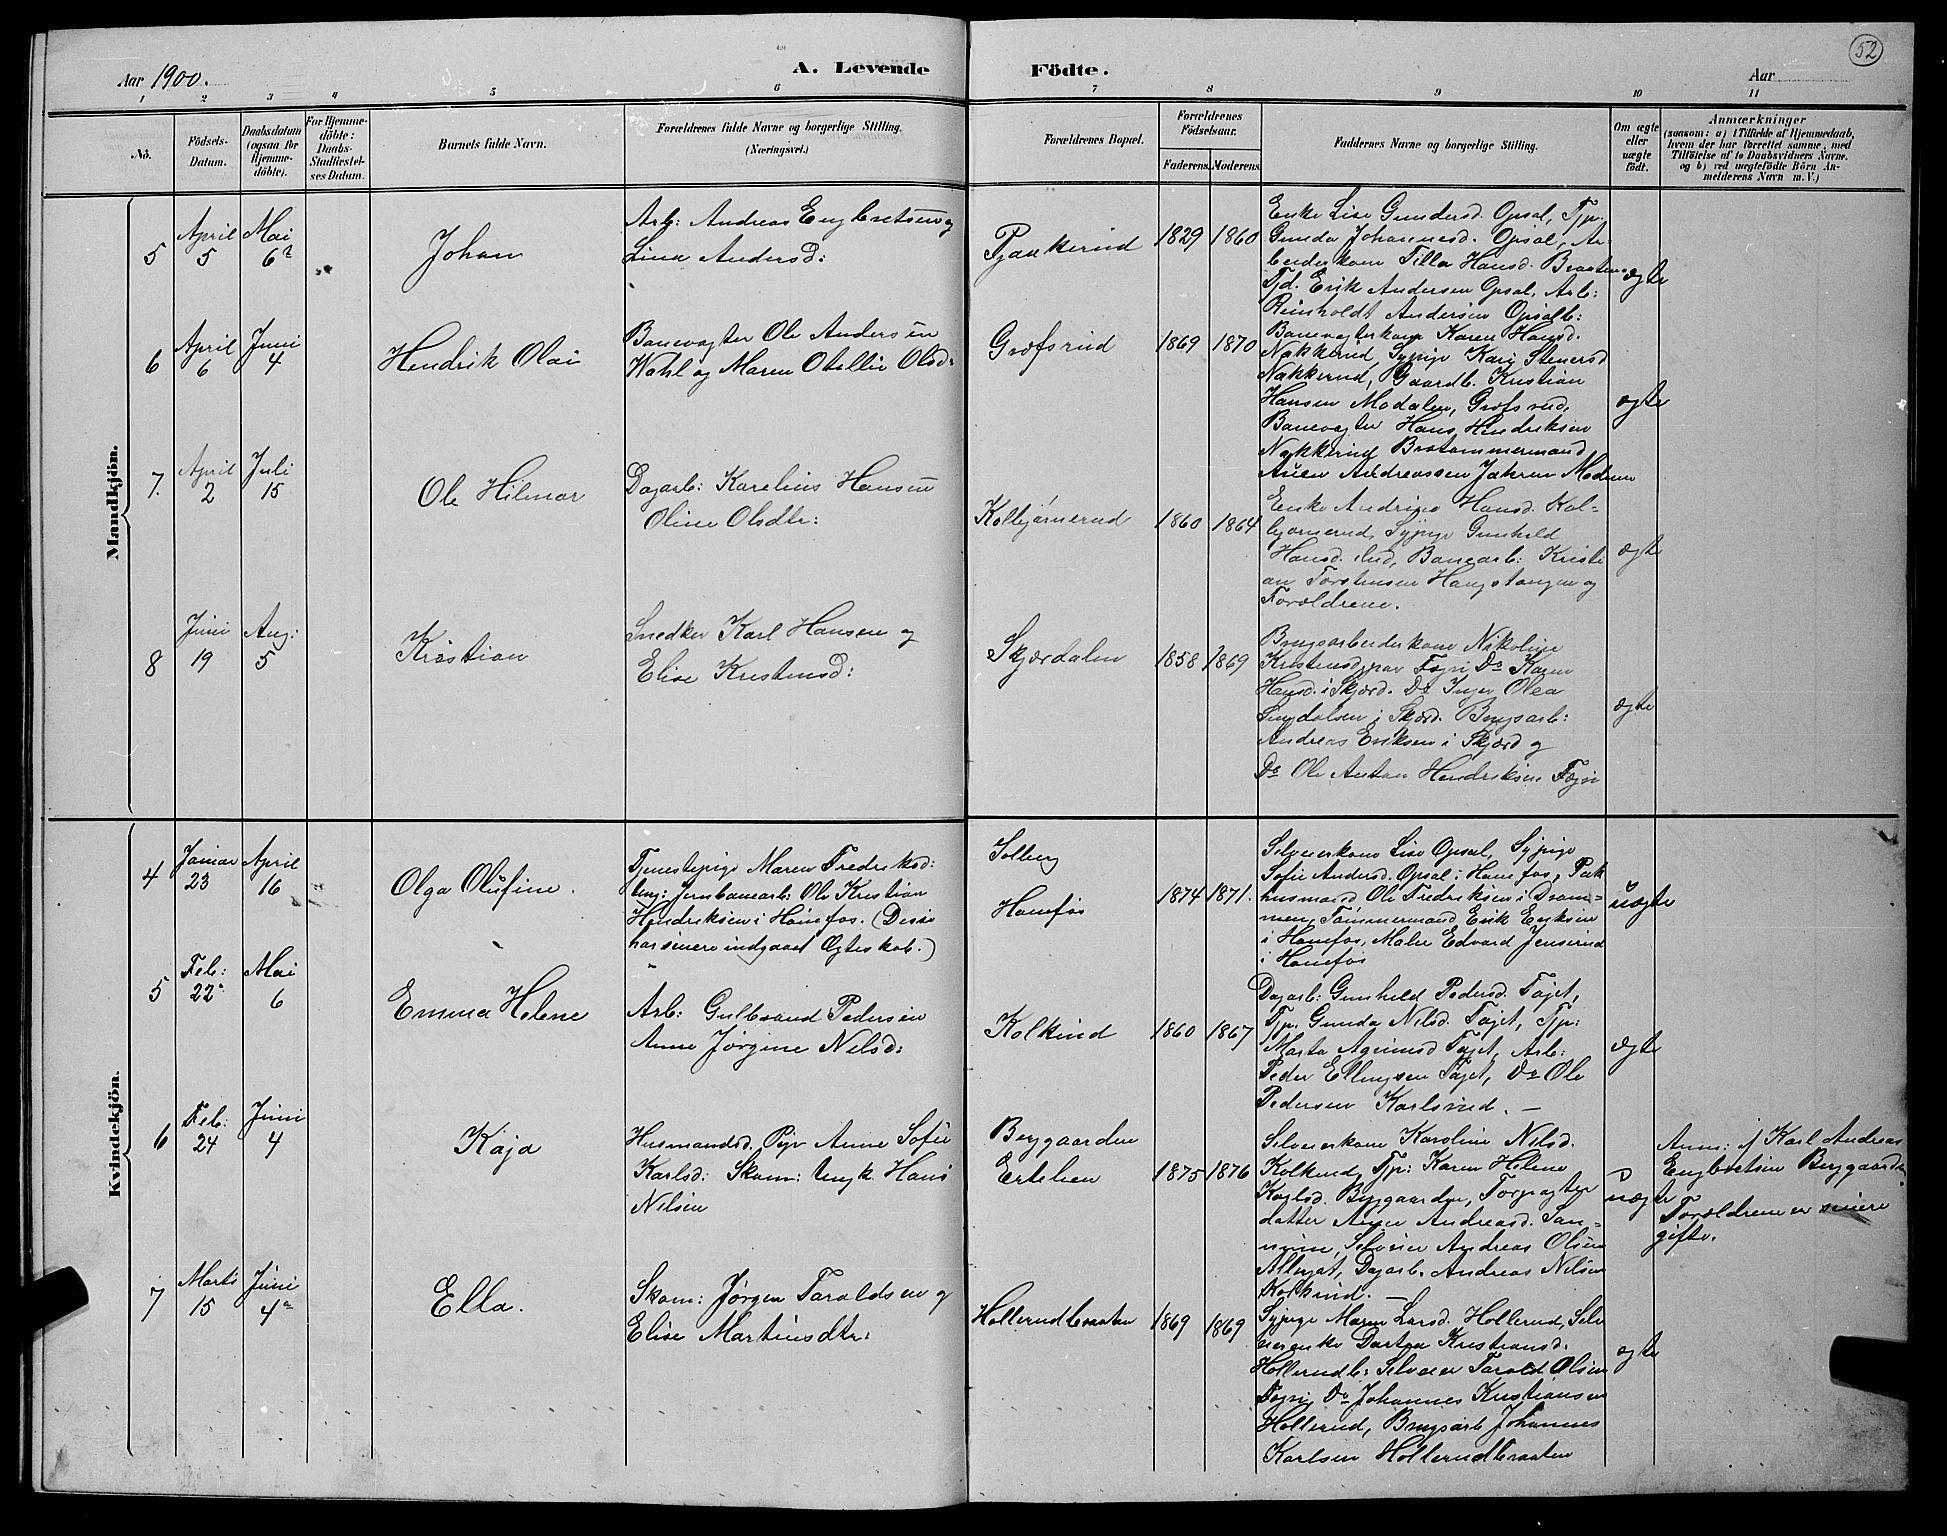 52
Aar 1900.
A. Levende Födte.
Aar
1 2 3 4 5 6 7 8 9 10 11
No.
Födsels-
Datum.
Daabsdatum
(ogsaa for
Hjemme-
döbte).
For Hjemme-
döbte:
Daabs-
Stadfæstel-
ses Datum.
Barnets fulde Navn.
Forældrenes fulde Navne og borgerlige Stilling.
(Næringsvei.)
Forældrenes Bopæl.
Forældrenes
Födselsaar.
Faderens. Moderens.
Faddernes Navne og borgerlige Stilling.
Om ægte
eller
uægte
födt.
Anmærkninger
(saasom: a) i Tilfælde af Hjemmedaab,
hvem der har forrettet samme, med
Tilföielse af to Daabsvidners Navne.
og b) ved uægtefödte Börn An-
melderens Navn m. V.)
Mandkjön.
5
April
5
Mai
6
Johan
Arb: Andreas Engbretsen og
Line Andersd:
Pjaakerud
1829 1860
Enke Lise Gundersd. Opsal, Tjp.
Gunda Johannesd. Opsal, Ar-
beiderkone Tilla Hansd. Braaten
Tjd. Erik Andersen Opsal, Arb:
Reinholdt Andersen Opsalb:
ægte
6
April
6
Juni
4
Hendrik Olai
Banevogter Ole Andersen
Wahl og Maren Otellie Olsd:
Græfsrud
1869 1870
Banevogterkone Karen Hansd.
Nakkerud, Sypige Kari Stenersd
Nakkerud, Gaardb. Kristian
Hansen Modalen, Græfsrud,
Banevogter Hans Hendriksen
Nakkerud Brotømmermand
Andreassen Modum
ægte
7.
April
2
Juli
15
Ole Hilmar
Dagarb: Karelius Hansen
Oline Olsdtr:
Kolbjørnerud
1860 1864
Enke Andrine Hansd. Kol-
bjørnerud, Sypige Gunhild
Hansd. ibid, Banearb: Kristi
an Torstensen Haugstangen og
Forældrene.
ægte
8
Juni
19
Aug:
5
Kristian
Snedker Karl Hansen og
Elise Kristensd:
Skjærdalen
1858 1869
Brugsarbeiderkone Nikoline
Kristensd Do Karen
Hansd. i Skjærd. Do Inger Olea
i Skjærd. Brugsarb:
Andreas Eriksen i Skjærd og
Do Ole Anton Hendriksen Fegri
ægte
Kvindekjön.
4
Januar
23
April
16
Olga Olufine.
Tjenestepige Maren Fredriksd:
Ung: Jernbanearb: Ole Kristian
Hendriksen i Hønefos. (Disse
har senere indgaaet Ægteskab.)
Solberg
Hønefos
1874 1871.
Selveierkone Lise Opsal, Sypige
Sofie Andersd. Opsal i Hønefos, Pak
husmand Ole Fredriksen i Dram-
men, Tømmermand Erik Eriksen
i Hønefos, Maler Edvard Jensrud
i Hønefos
uægte
5
Feb:
22
Mai
6
Emma Helene
Arb: Gulbrand Pedersen
Anne Jørgine Nilsd:
Kolkind
1860 1867
Dagarb: Gunhild Pedersd. Fajet,
Tjp. Gunda Nilsd. Fajet, Tjp:
Marta Fajet, Arb:
Peder Ellingsen Fajet, Do Ole
Pedersen Karlsrud. —
ægte
6
Feb:
24
Juni
4
Kaja
Husmandsd. Pige Anne Sofie
Karlsd: Skom: Ungk. Hans
Nilsen
Berggaarden
Ertelien
1875 1876
Selveierkone Karoline Nilsd.
Kolkind, Tjp: Karen Helene
Karlsd. Berggaarden, Forpagter
datter Anne Andreasd. San-
num, Selveier Andreas Olsen
Dagarb. Andreas Nilsen
Kolkind. —
uægte
Anm: af Karl Andreas
Engbretsen Berggaarden
Forældrene er senere
gifte.
7
Marts
15
Juni
4
Ella.
Skom: Jørgen Taraldsen og
Elise Martinsdtr:
Hollerudbraaten
1869 1869
Sypige Maren Larsd. Hollerud, Selv
eierenke Dortea Kristiansd.
Hollerudb: Selveier Tarald Olsen
Fegri, Do Johannes Kristiansen
Hollerud, Brugsarb Johannes
Karlsen Hollerudbraaten
ægte